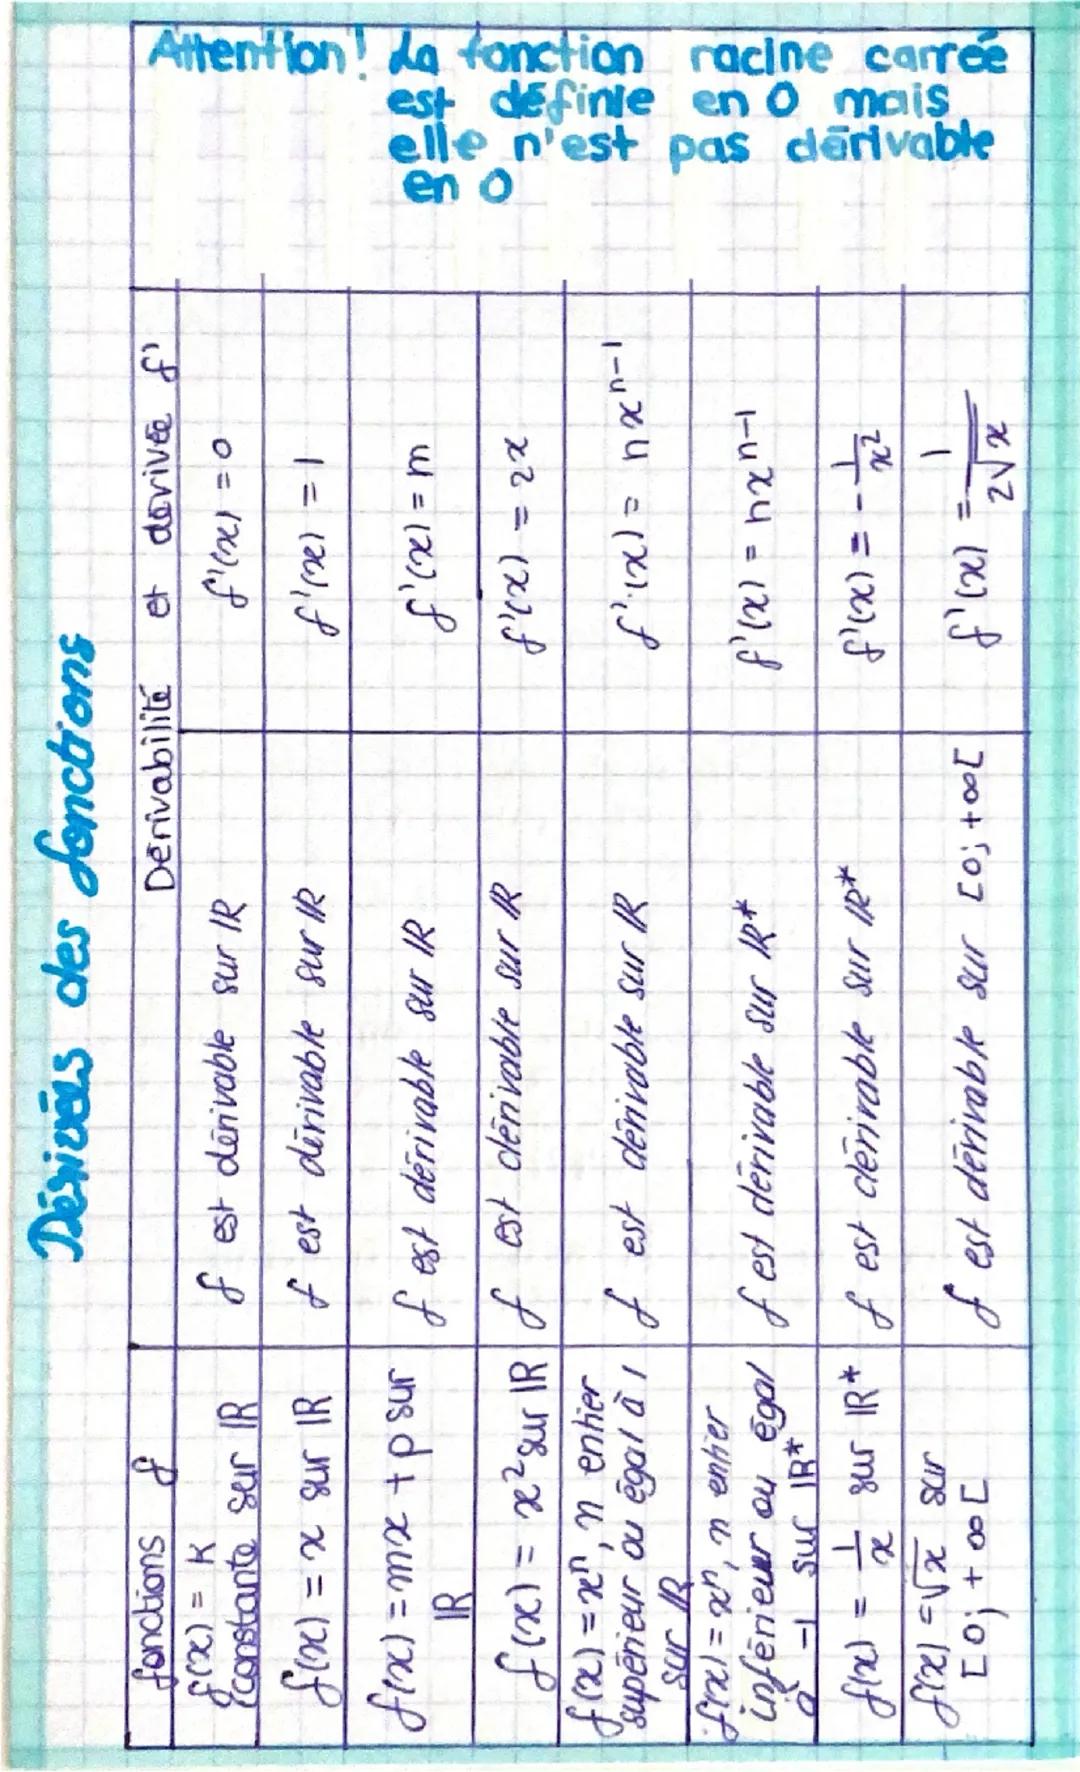 Dérivées des fonctions
fonctions f
Dérivabilité et dérivée f'
f(x) = K
(constante sur IR
f est dérivable sur IR
f'(x) = 0
f(x) = x sur IR
f est dérivable sur IR
f'(x) = 1
f(x) = mx + p sur
IR
f est dérivable sur IR
f'(x) = m
f(x) = x² sur IR
f est dérivable sur IR
f'(x) = 2x
f(x) = xⁿ, n entier
supérieur ou égal à 1
sur IR
f est dérivable sur IR
f'(x) = nxⁿ⁻¹
f(x) = xⁿ, n entier
inférieur ou égal
à -1 sur IR*
f est dérivable sur IR*
f'(x) = nxⁿ⁻¹
f(x) = 1/x sur IR*
f est dérivable sur IR*
f'(x) = -1/x²
f(x) = √x sur
[0; +∞[
f est dérivable sur [0; +∞[
f'(x) = 1/2√x
Attention! La fonction racine carrée
est définie en 0 mais
elle n'est pas dérivable
en 0